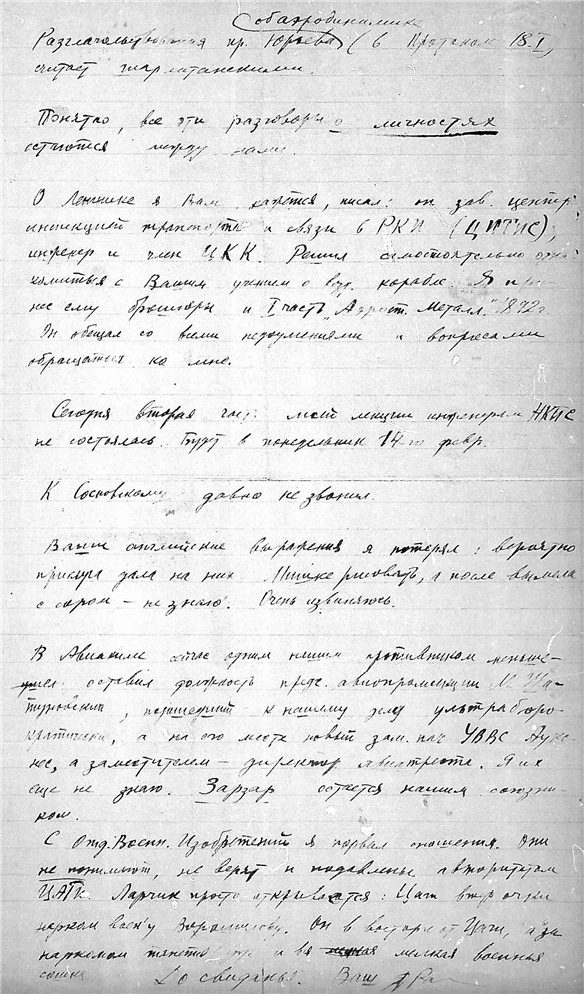 Собаэродинамике
Разглагольствования пр. Юрьева (в Протокол 18.I)
считает шарлатанскими.
Понятно, все эти разговоры о личностях
остаются между нами.
О Ленгнике я Вам, кажется, писал: он зав. центр.
инспекцией транспорта и связи в РКИ (ЦИТИС),
инженер и член ЦКК. Решил самостоятельно озна-
комиться с Вашим учением о возд. корабле. Я при-
нес ему брошюры и I часть „Аэрост. Металл." 1892 г.
Он обещал со всеми недоумениями и вопросами
обращаться ко мне.
Сегодня вторая часть моей лекции инженерам НКПС
не состоялась. Будет в понедельник 14-го февр.
К Сосновскому давно не звонил.
Ваши английские выражения я потерял: вероятно
прислуга дала на них Мишке рисовать, а после вымела
с сором – не знаю. Очень извиняюсь.
В Авиахиме сейчас одним нашим противником меньше-
оставил должность предс. авиопромсекции М. Ша-
туровский, подошедший к нашему делу ультрабюро-
кратически, а на его месте новый зам. нач УВВС
а заместителем – директор авиатреста. Я их
еще не знаю. Зарзар остается нашим союзни-
ком.
С Отд. Военн. Изобретений я порвал сношения. Они
не понимают, не верят и подавлены авторитетом
ЦАГИ. Ларчик просто открывается: Цаги втер очки
нарком воен'у Ворошилову. Он в восторге от Цаги, а за
наркомом тянется и вся мелкая военная
сошка. До свиданья. Ваш